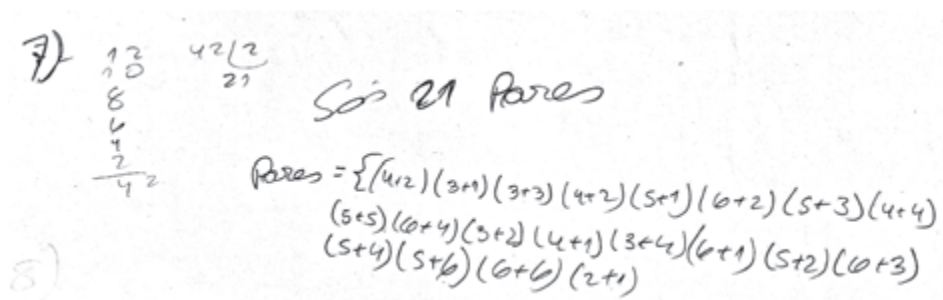 7) 12 42 | 2
10 21
8
6
4
2
42
Són 21 Pares
Pares = {(4+2) (3+1) (3+3) (4+2) (5+1) (6+2) (5+3) (4+4)
(5+5) (6+4) (3+2) (4+1) (3+4) (6+1) (5+2) (6+3)
(5+4) (5+6) (6+6) (2+1)
8)